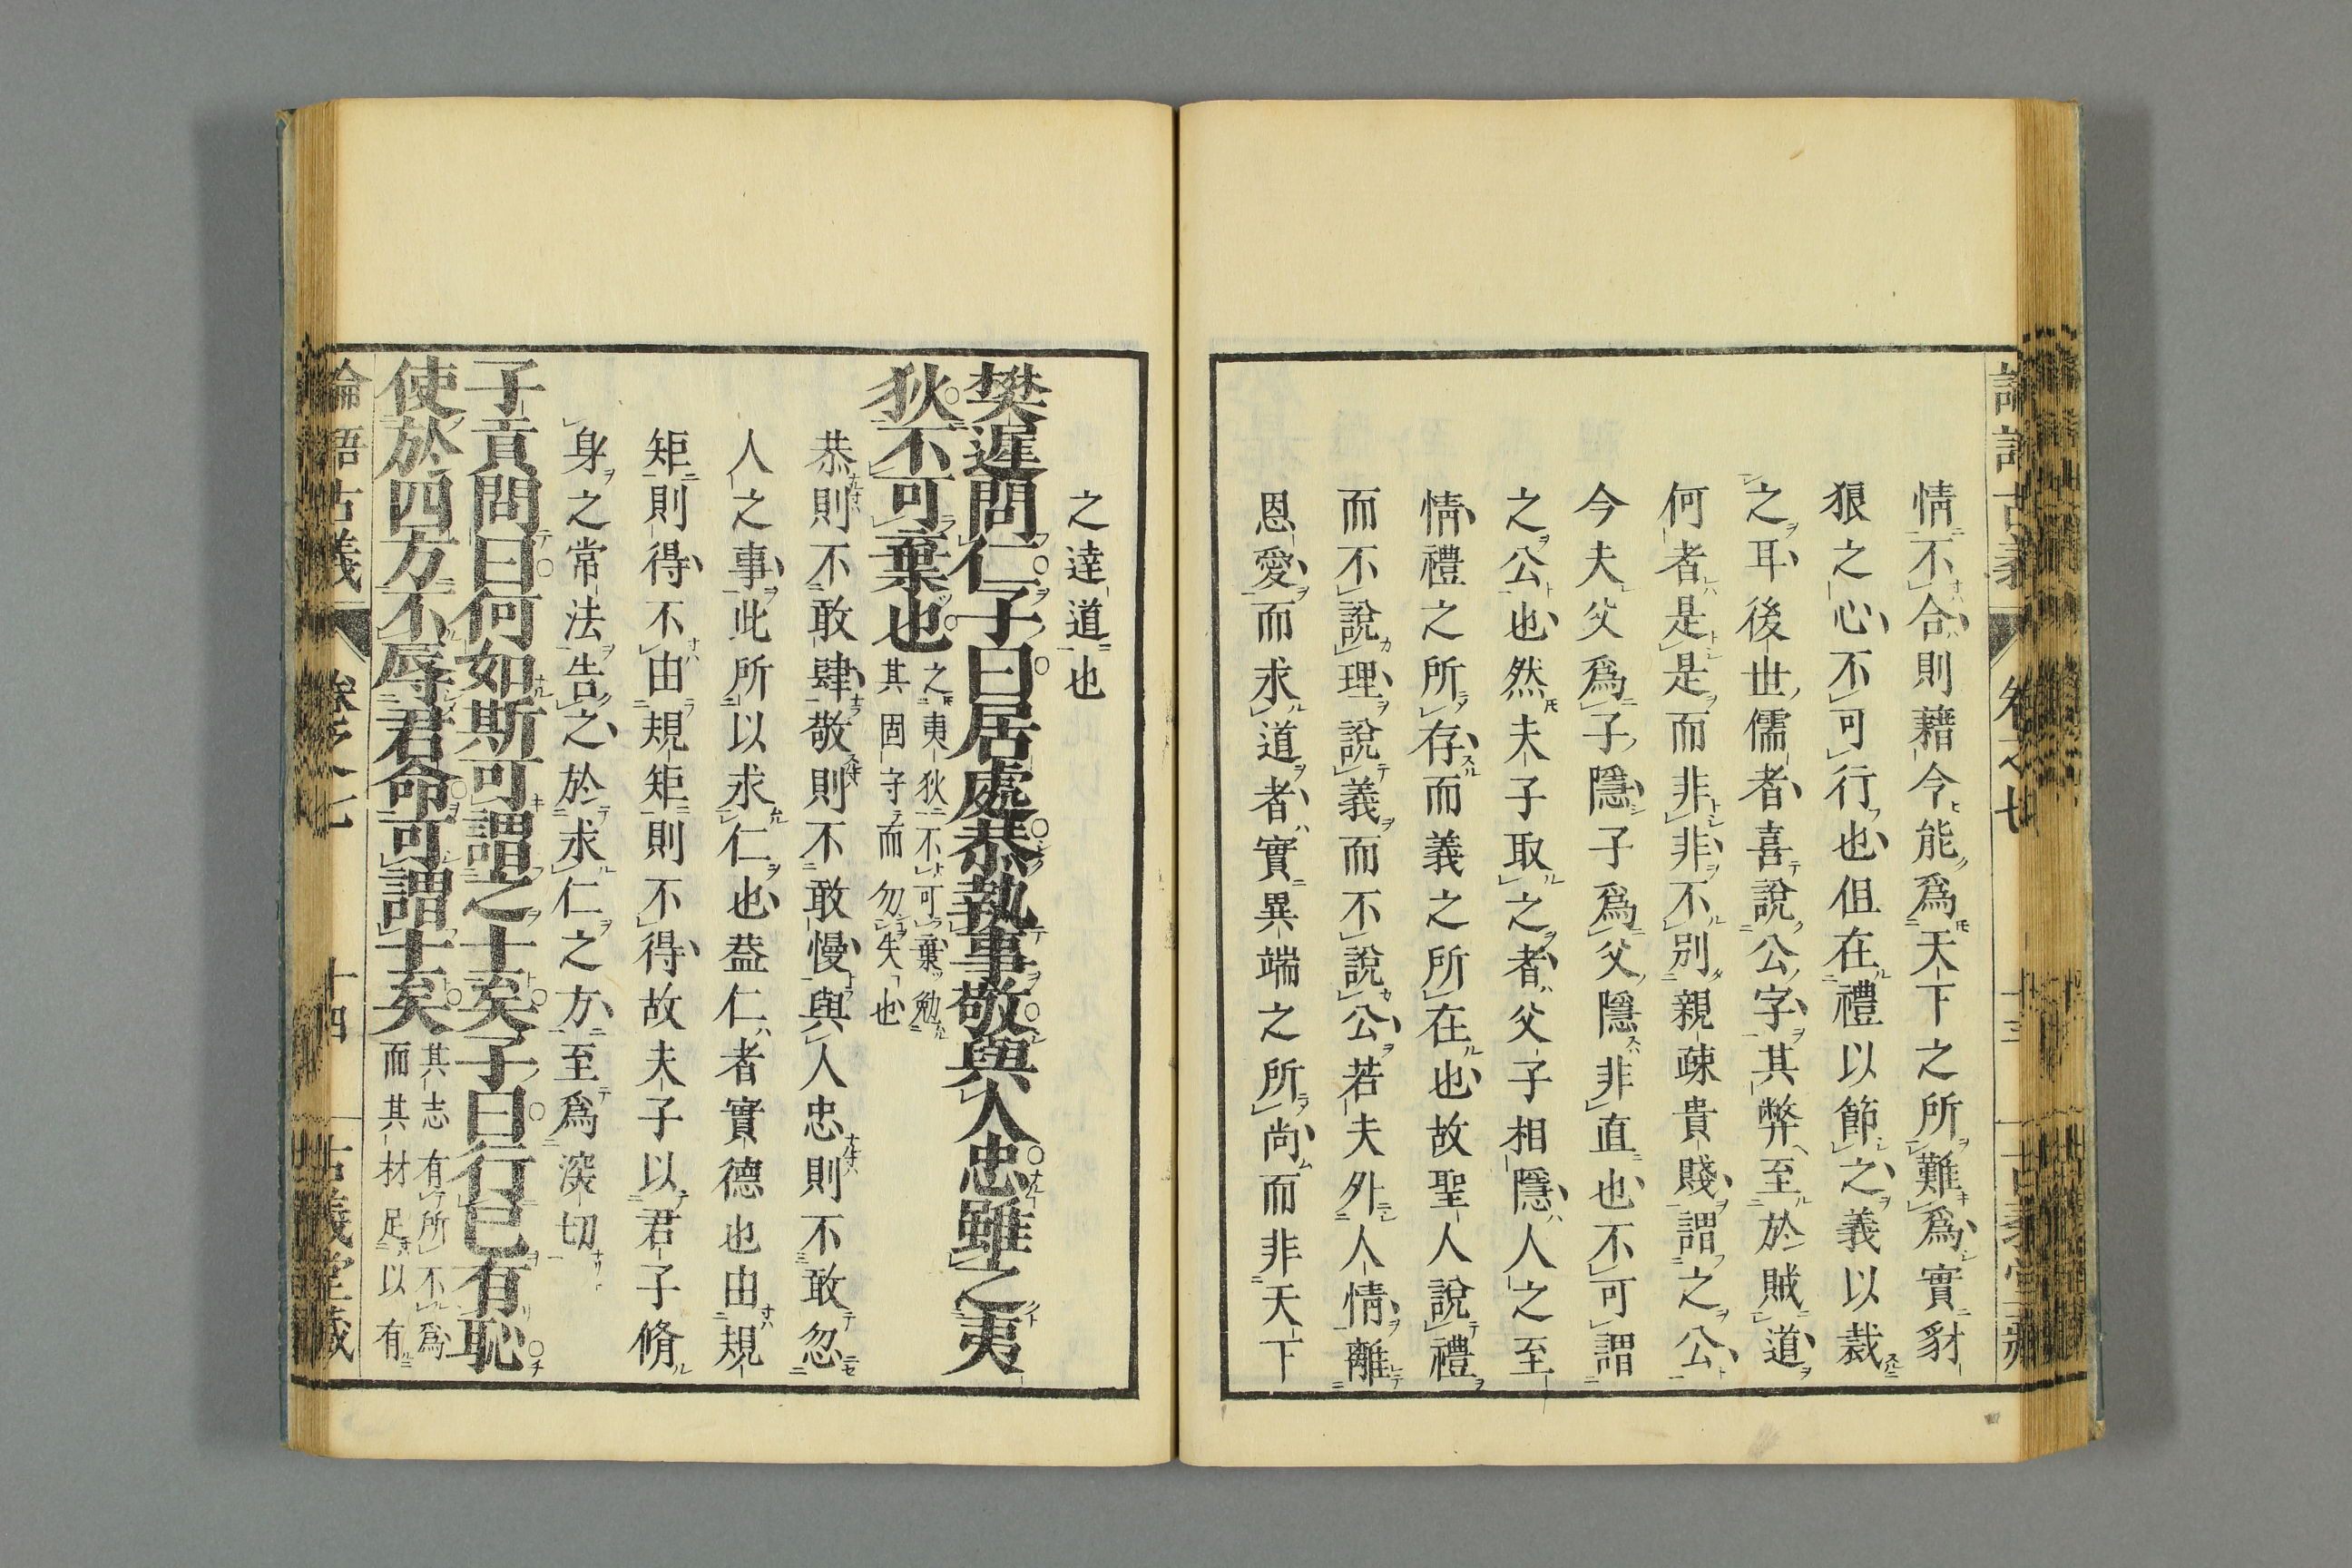 情不合則藉今能爲天下之所難爲實豺
狼之心不可行也但在禮以節之義以裁
之耳後世儒者喜說公字其弊至於賊道
何者是是而非非不別親疎貴賤謂之公
今夫父爲子隱子爲父隱非直也不可謂
之公也然夫子取之者父子相隱人之至
情禮之所存而義之所在也故聖人說禮
而不說理說義而不說公若夫外人情離
恩愛而求道者實異端之所尚而非天下
之達道也
樊遲問仁子曰居處恭執事敬與人忠雖之夷
狄不可棄也
之夷狄不可棄勉
其固守而勿失也
恭則不敢肆敬則不敢慢與人忠則不敢忽
人之事此所以求仁也葢仁者實德也由規
矩則得不由規矩則不得故夫子以君子脩
身之常法告之於求仁之方至爲深切
子貢問曰何如斯可謂之士矣子曰行已有恥
使於四方不辱君命可謂士矣
其志有所不爲
而其材足以有
論語古義 卷之七 十四 古義堂藏